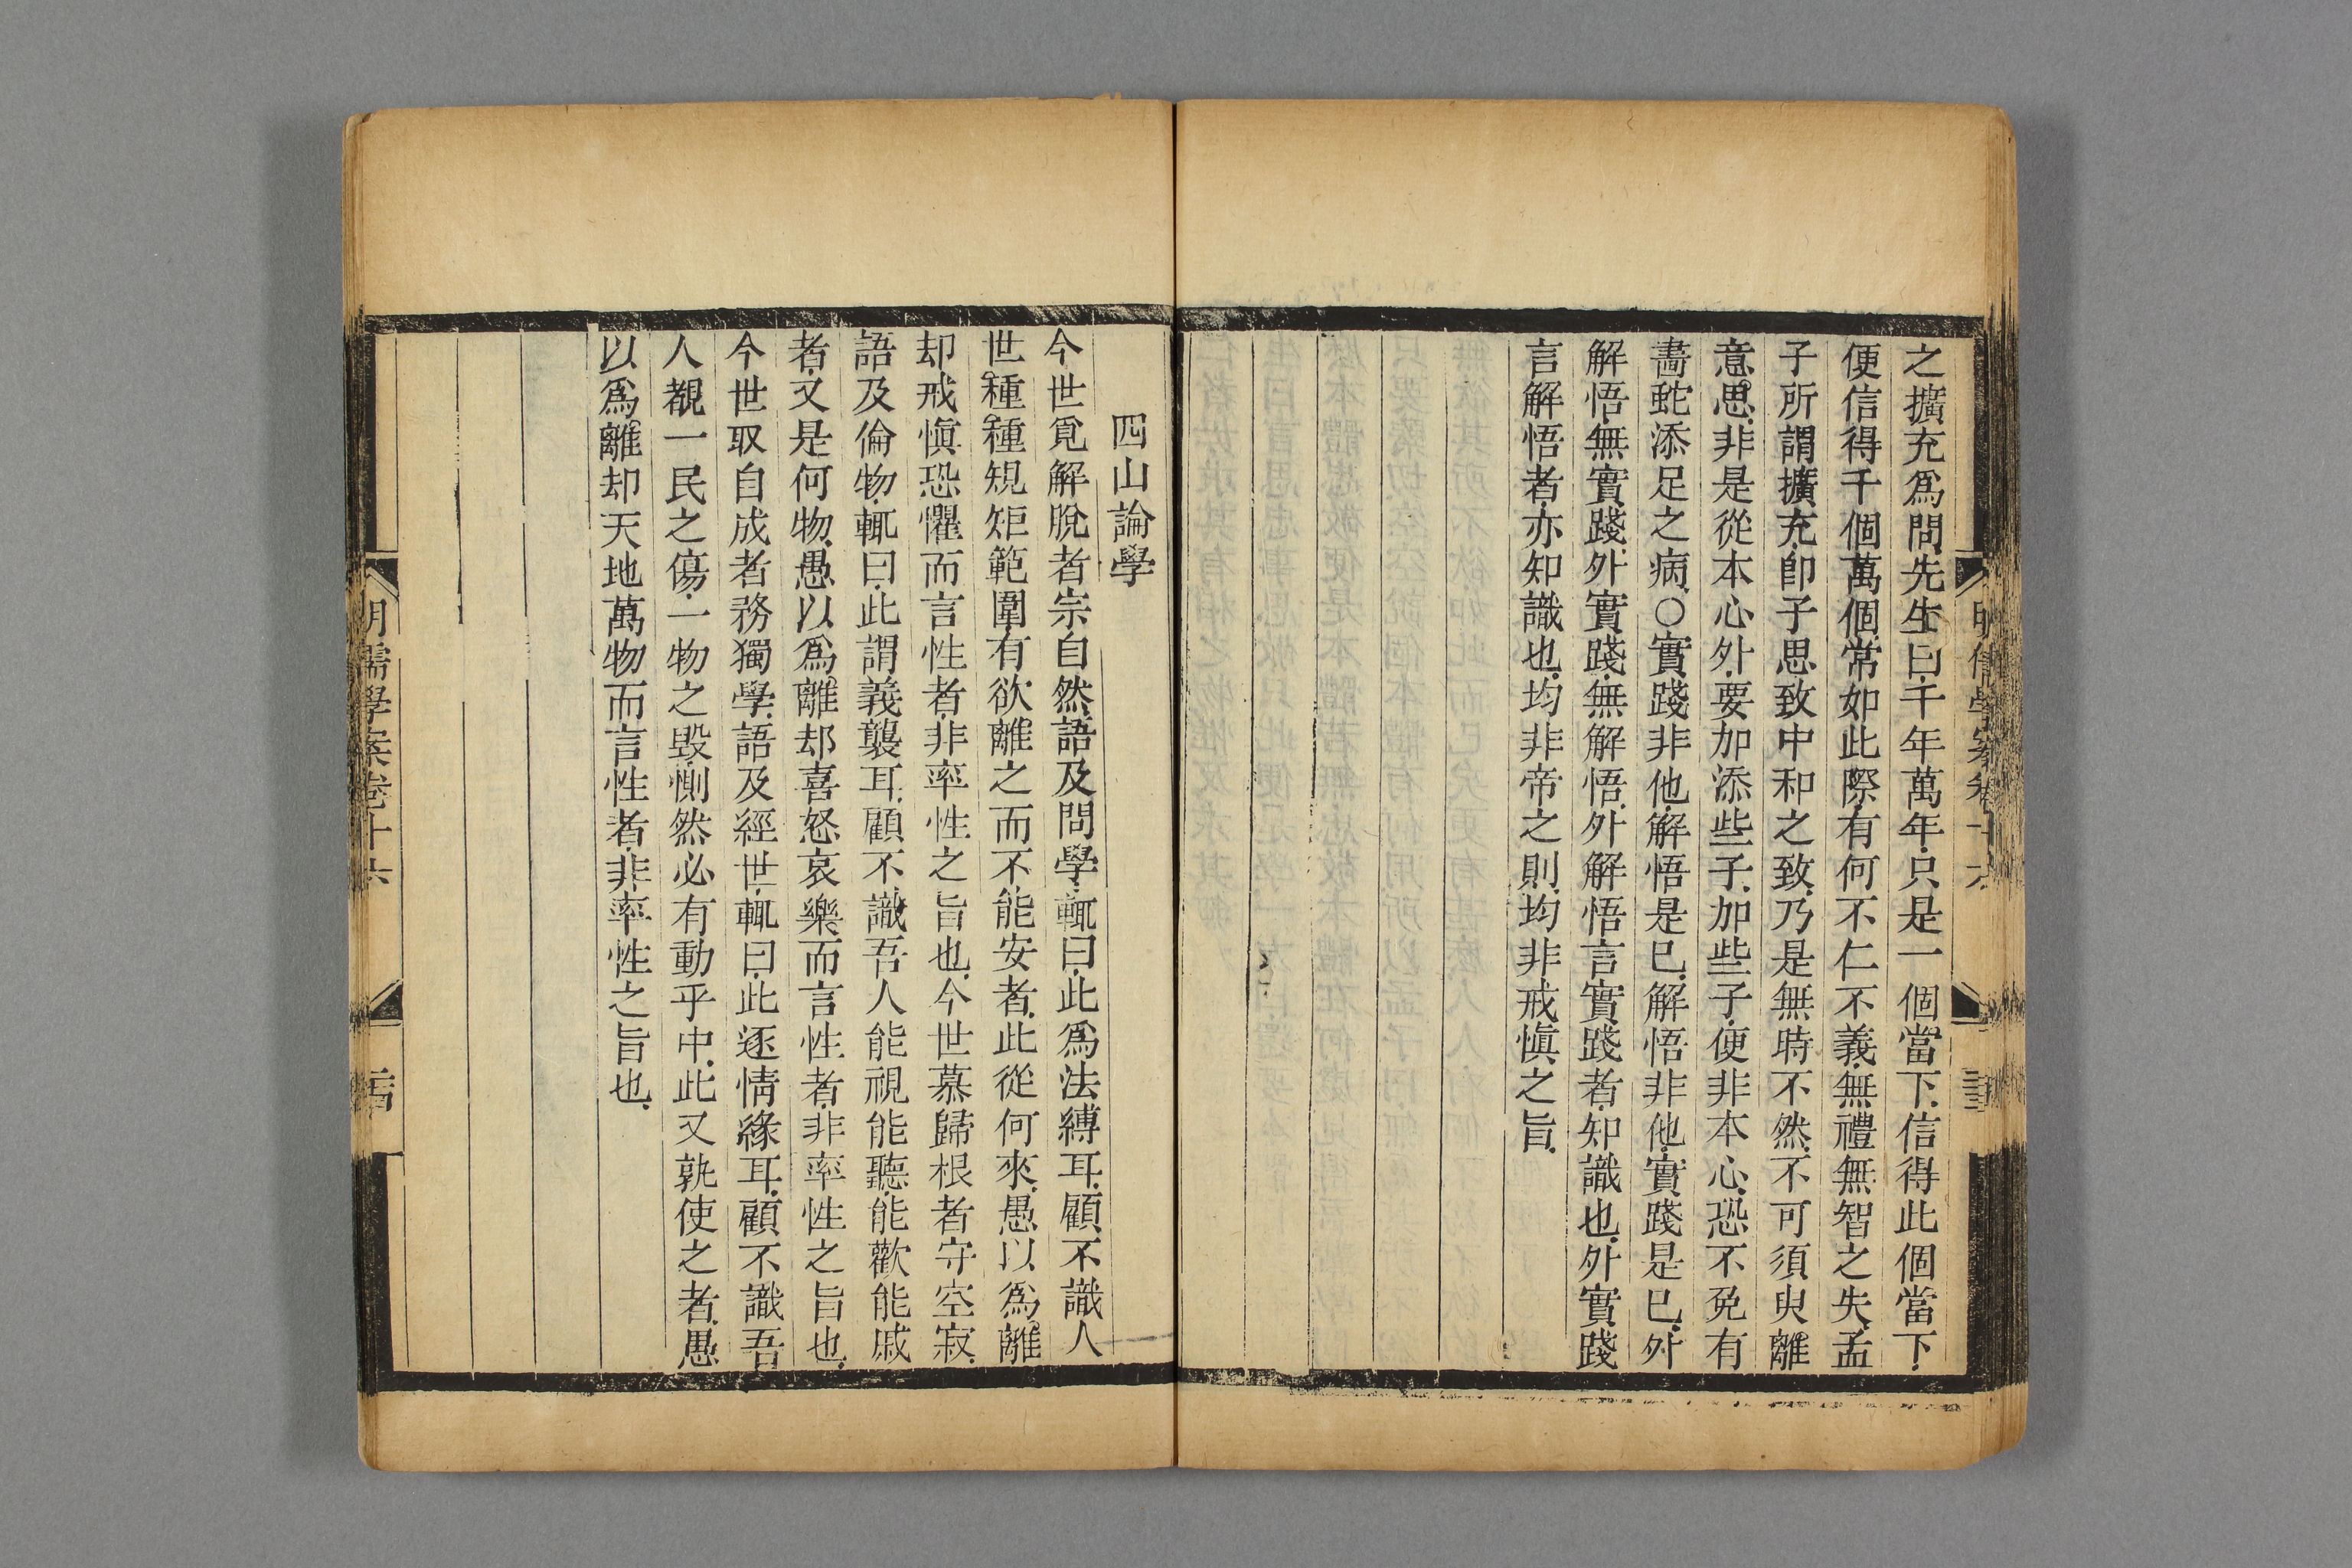 之擴充爲問先生曰千年萬年只是一個當下信得此個當下
便信得千個萬個常如此際有何不仁不義無禮無智之失孟
子所謂擴充卽子思致中和之致乃是無時不然不可須臾離
意思非是從本心外要加添些子加些子便非本心恐不免有
畵蛇添足之病○實踐非他解悟是已解悟非他實踐是已外
解悟無實踐外實踐無解悟外解悟言實踐者知識也外實踐
言解悟者亦知識也均非帝之則均非戒愼之旨
四山論學
今世覓解脫者宗自然語及問學輒曰此爲法縛耳顧不識人
世種種規矩範圍有欲離之而不能安者此從何來愚以爲離
却戒愼恐懼而言性者非率性之旨也今世慕歸根者守空寂
語及倫物輒曰此謂義襲耳顧不識吾人能視能聽能歡能戚
者又是何物愚以爲離却喜怒哀樂而言性者非率性之旨也
今世取自成者務獨學語及經世輒曰此逐情緣耳顧不識吾
人覩一民之傷一物之毀惻然必有動乎中此又孰使之者愚
以爲離却天地萬物而言性者非率性之旨也
明儒學案卷十六